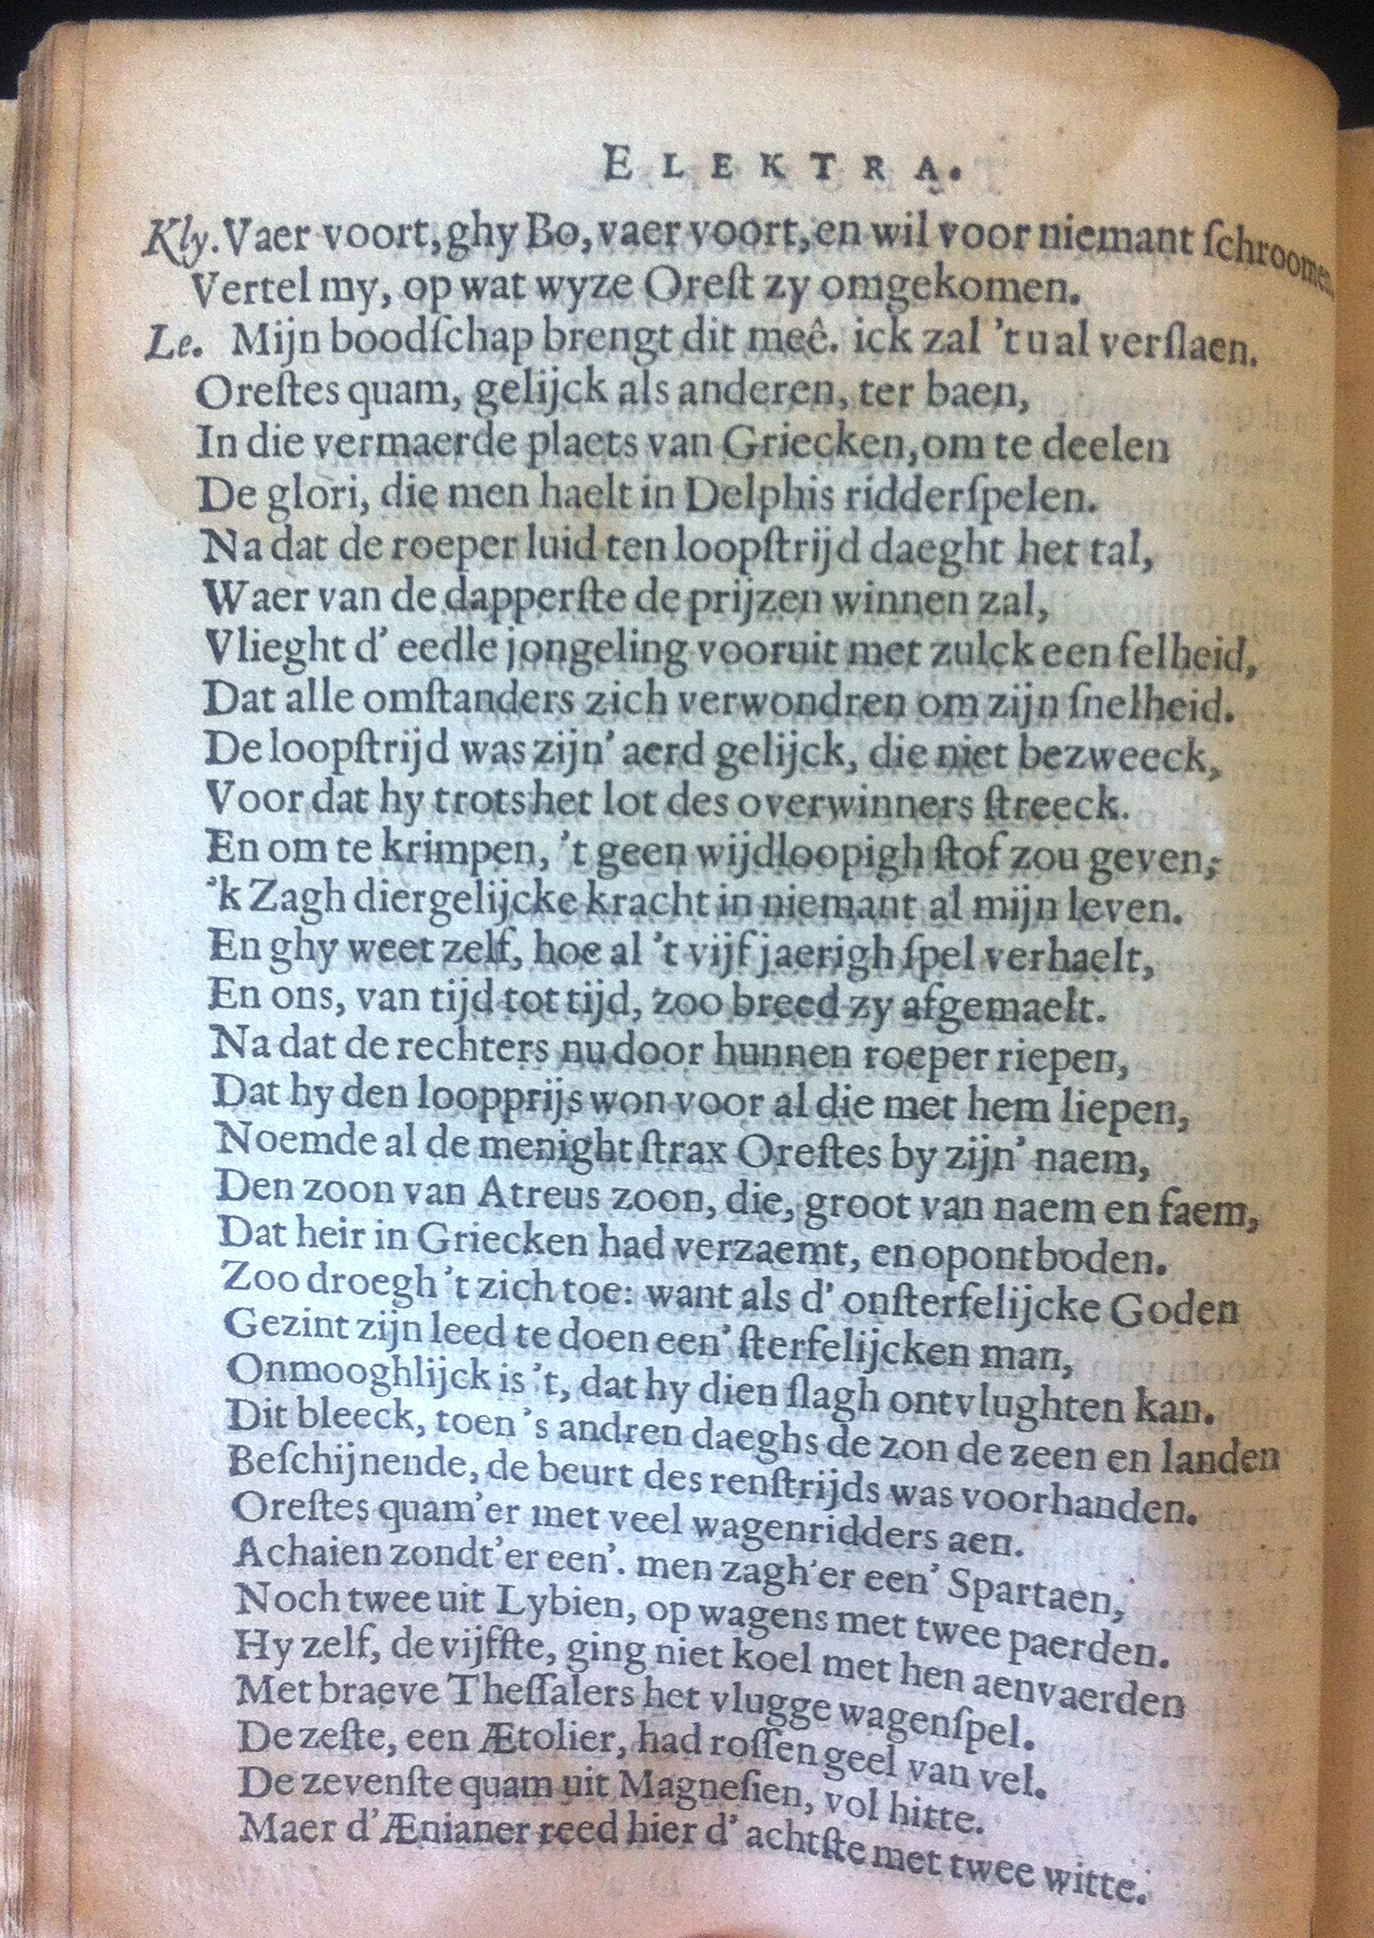 ELEKTRA.
Kly. Vaer voort, ghy Bo, vaer voort, en wil voor niemant ſchroomen
Vertel my, op wat wyze Oreſt zy omgekomen.
Le. Mijn boodſchap brengt dit meê. ick zal 't u al verſlaen.
Oreſtes quam, gelijck als anderen, ter baen,
In die vermaerde plaets van Griecken, om te deelen
De glori, die men haelt in Delphis ridderſpelen.
Na dat de roeper luid ten loopſtrijd daeght het tal,
Waer van de dapperſte de prijzen winnen zal,
Vlieght d' eedle jongeling vooruit met zulck een felheid,
Dat alle omſtanders zich verwondren om zijn ſnelheid.
De loopſtrijd was zijn' aerd gelijck, die niet bezweeck,
Voor dat hy trots het lot des overwinners ſtreeck.
En om te krimpen, 't geen wijdloopigh ſtof zou geven;
'k Zagh diergelijcke kracht in niemant al mijn leven.
En ghy weet zelf, hoe al 't vijfjaerigh ſpel verhaelt,
En ons, van tijd tot tijd, zoo breed zy afgemaelt.
Na dat de rechters nu door hunnen roeper riepen,
Dat hy den loopprijs won voor al die met hem liepen,
Noemde al de menight ſtrax Oreſtes by zijn' naem,
Den zoon van Atreus zoon, die, groot van naem en faem,
Dat heir in Griecken had verzaemt, en opontboden.
Zoo droegh 't zich toe: want als d' onſterfelijcke Goden
Gezint zijn leed te doen een' ſterfelijcken man,
Onmooghlijck is 't, dat hy dien ſlagh ontvlughten kan.
Dit bleeck, toen 's andren daeghs de zon de zeen en landen
Beſchijnende, de beurt des renſtrijds was voorhanden.
Oreſtes quam'er met veel wagenridders aen.
Achaien zondt'er een'. men zagh'er een' Spartaen,
Noch twee uit Lybien, op wagens met twee paerden.
Hy zelf, de vijfſte, ging niet koel met hen aenvaerden
Met braeve Theſſalers het vlugge wagenſpel.
De zeſte, een Ætolier, had roſſen geel van vel.
De zevenſte quam uit Magneſien, vol hitte.
Maer d'Ænianer reed hier d' achtſte met twee witte.